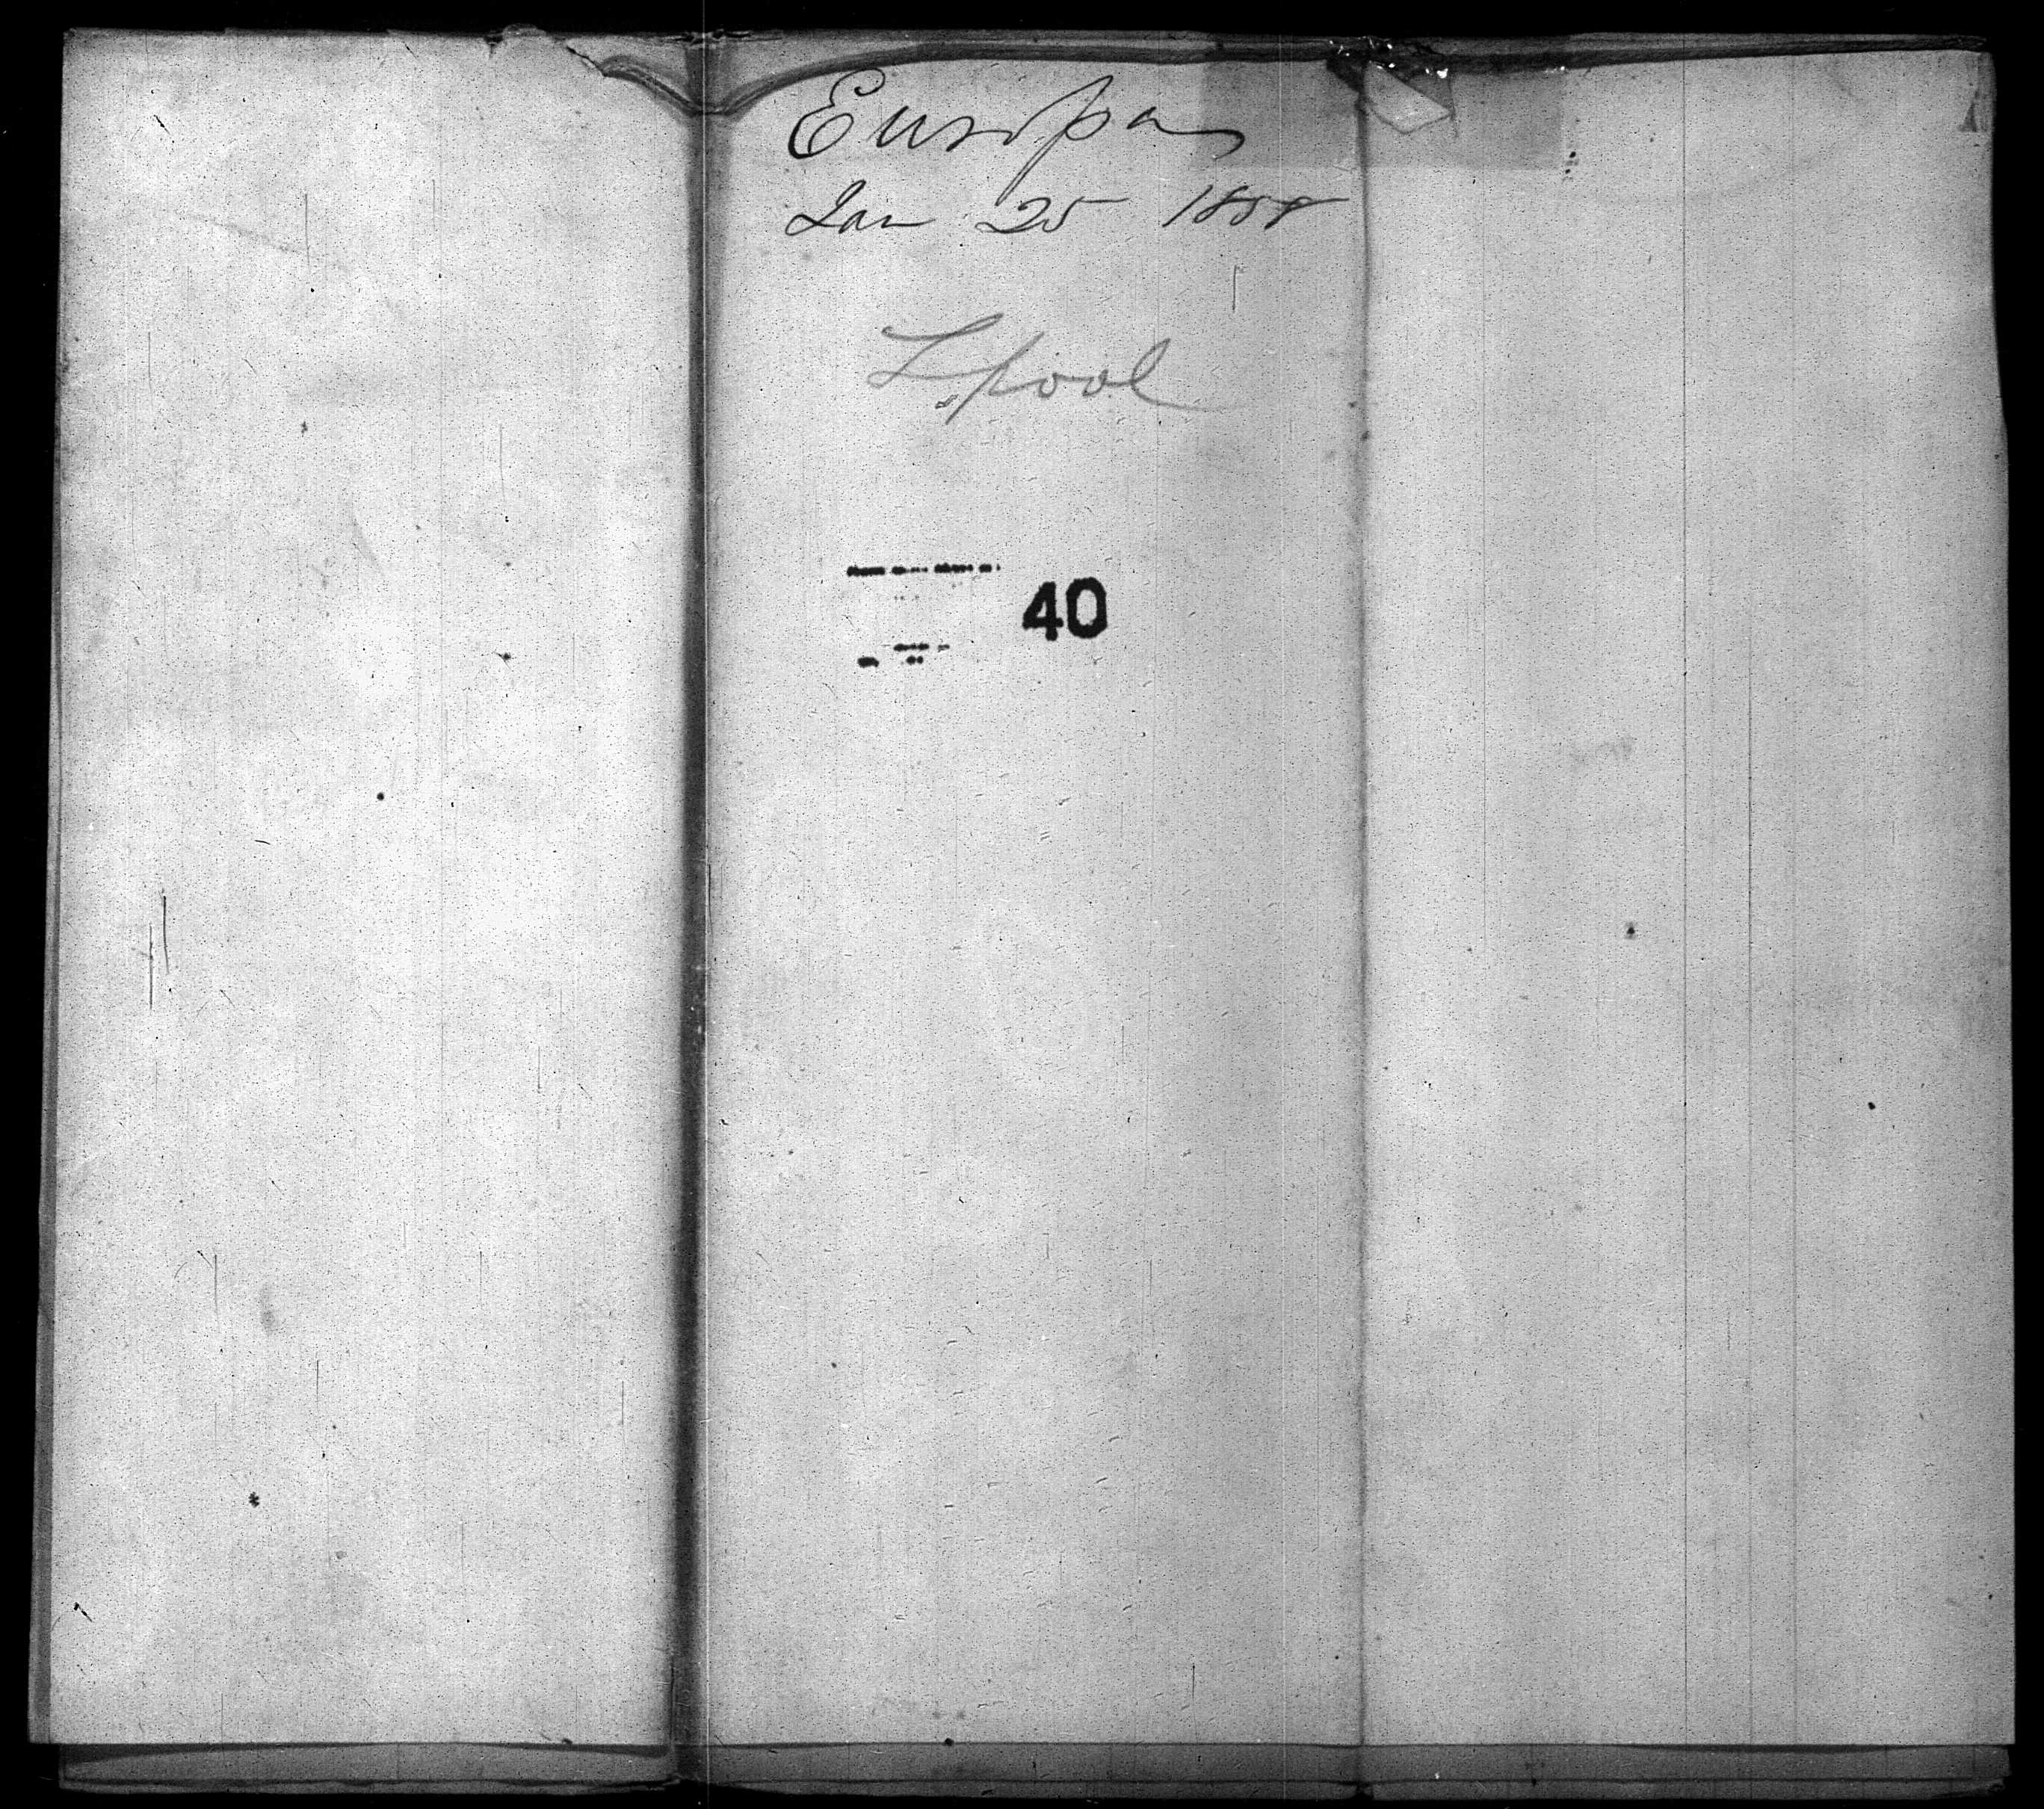 Europa
Jan 25 1858
Lpool
40